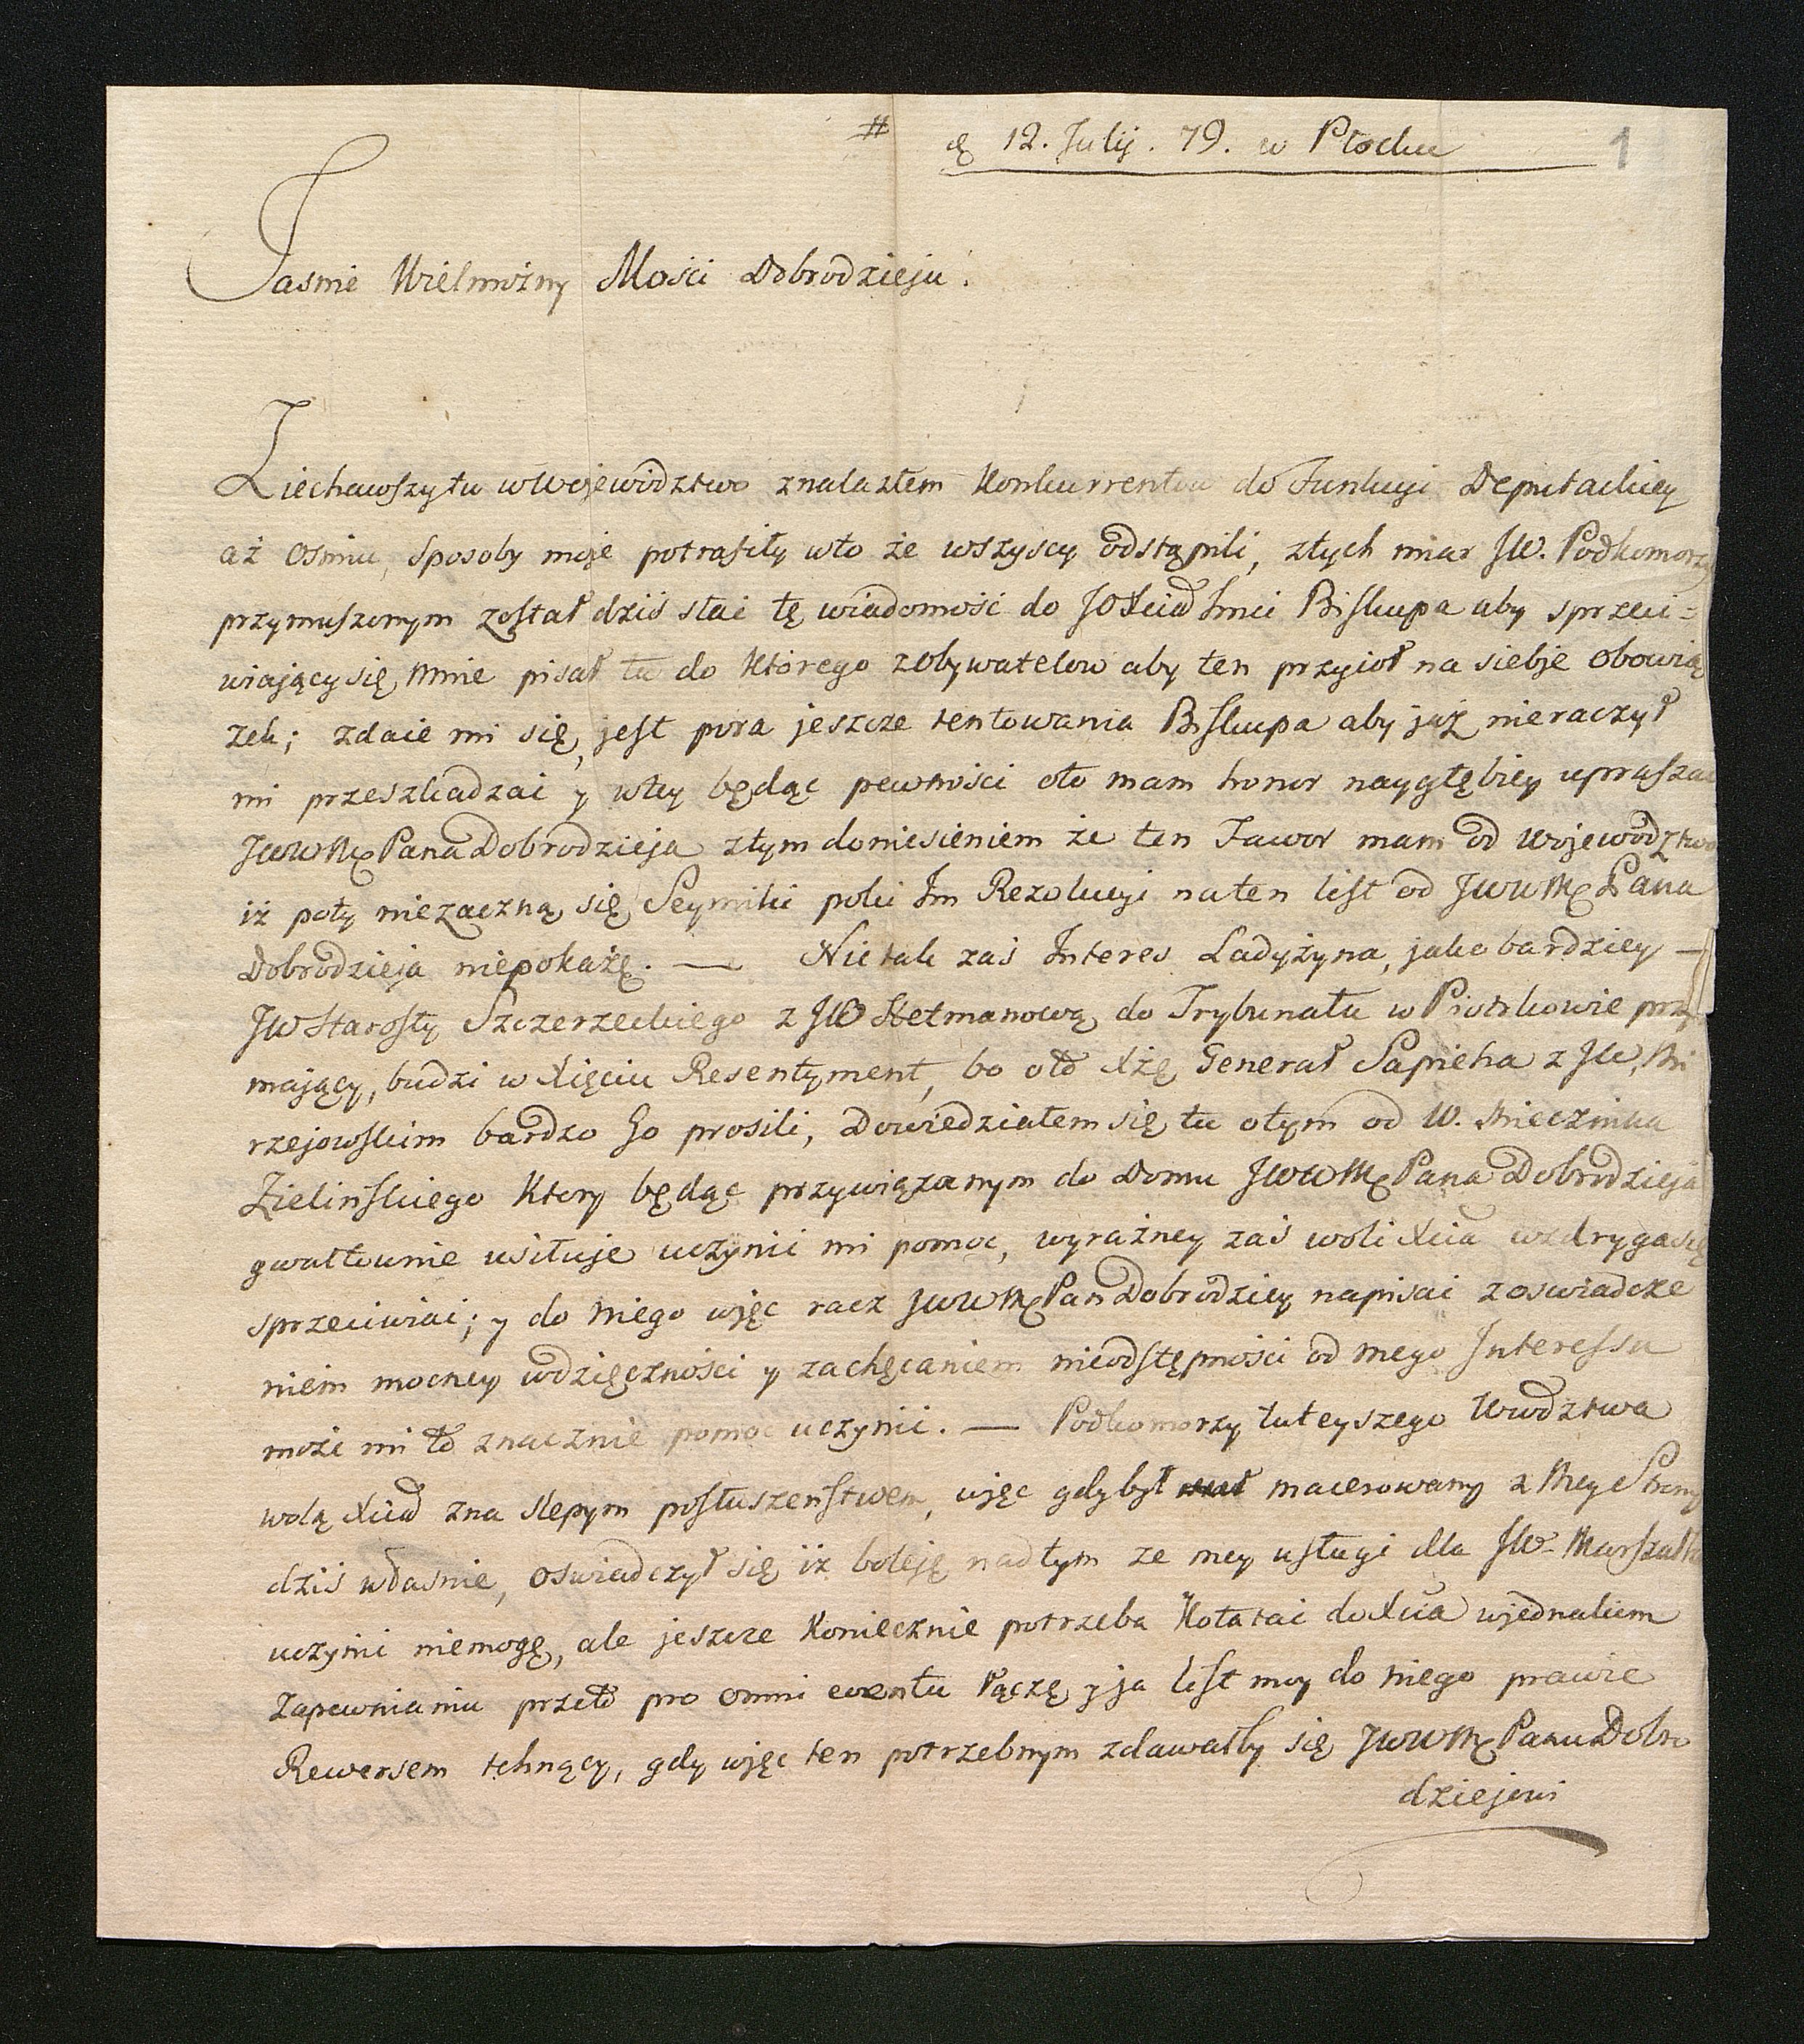 #
d 12. Julij. 79. w Płocku
1
Jasnie Wielmożny Mości Dobrodzieju.
Ziechawszy tu wWojewodztwo znalazłem Konkurrentow do Funkcyi Deputackiey
aż osmiu, sposoby moje potrafiły wto że wszyscy odstąpili, ztych miar JW. Podkomorzy
przymuszonym został dziś słać tę wiadomość do JOXcia Jmci Biskupa aby sprzeci-
wiający się mnie pisał tu do Ktorego zobywatelow aby ten przyioł na siebje obowią
zek; zdaie mi się jest pora jeszcze tentowania Biskupa aby już nieraczył
mi przeszkadzać y wtey będąc pewności oto mam honor naygłębiey upraszać
JWWMP Pana Dobrodzieja ztym doniesieniem że ten Fawor mam od Wojewodztwa
iż poty niezaczną się Seymiki poki Im Rezolucyi naten list od JWWMP Pana
Dobrodzieja niepokażę. — Nietak zaś Interes Ladyżyna, jako bardziey —
JW Starosty Szczerzeckiego z JW Hetmanową do Trybunału w Piotrkowie przy
mający, budzi w Xięciu Resentyment, bo oto Xżę Generał Sapieha z JW. Mi
rzejowskim bardzo Go prosili, Dowiedziałem się tu otym od W. Miecznika
Zielińskiego Ktory będąc przywiązanym do Domu JWWMP Pana Dobrodzieja
gwałtownie usiłuje uczynić mi pomoc, wyraźney zaś woli Xcia wzdryga się
sprzeciwiać; y do niego wjęc racz JWWMP Pan Dobrodziey napisać zoswiadcze
niem mocney wdzięczności y zachęcaniem nieodstępności od mego Interessu
może mi to znacznie pomoc uczynić. — Podkomorzy tuteyszego Wwodztwa
wolą Xcia zna slepym posłuszeństwem, wjęc gdy był macerowany z Mey Strony
dziś własnie, oswiadczył się iż boleję nad tym ze mey usługi dla JW. Marszałka
uczynić niemogę, ale jeszcze Koniecznie potrzeba Kołatać do Xcia wjednakim
Zapewnianiu przeto pro omni eventu Łączę y ja list moy do niego prawie
Rewersem tchnący, gdy wjęc ten potrzebnym zdawałby się JWWMP Panu Dobro
dziejowi